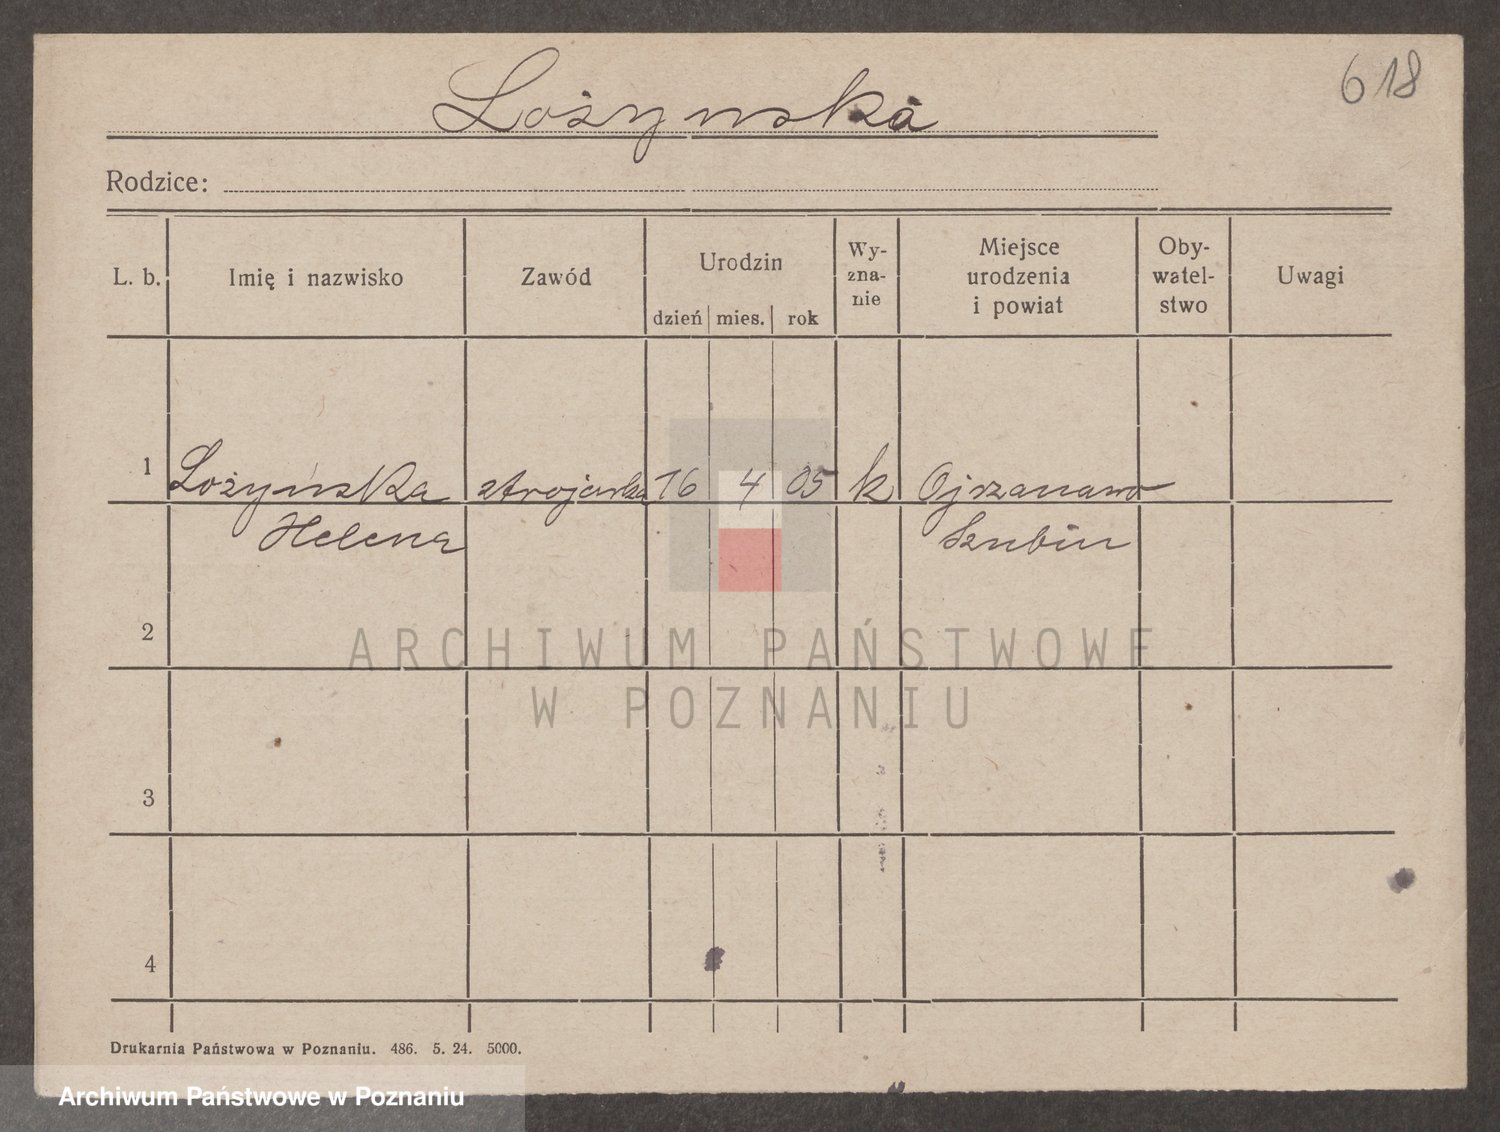 618
Łożynska
Rodzice:
L. b.
Imię i nazwisko
Zawód
Urodzin
dzień mies. rok
Wy-
zna-
nie
Miejsce
urodzenia
i powiat
Oby-
watel-
stwo
Uwagi
1 Łożyńska strojarka 16 4 05 k Ojrzanowo
Helena Szubin
2
3
4
ARCHIWUM PAŃSTWOWE
W POZNANIU
Drukarnia Państwowa w Poznaniu. 486. 5. 24. 5000.
Archiwum Państwowe w Poznaniu